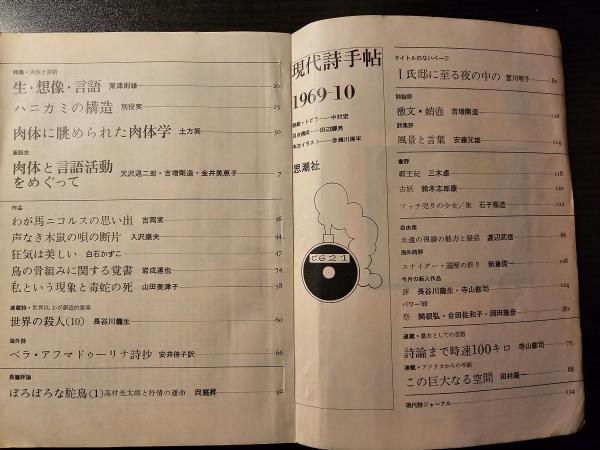 特集・肉体と言語
生・想像・言語 粟津則雄 20
ハニカミの構造 別役実 25
肉体に眺められた肉体学 土方巽 30
座談会
肉体と言語活動
をめぐって 天沢退二郎・吉増剛造・金井美恵子 7
作品
わが馬ニコルスの思い出 吉岡実 36
声なき木鼠の唄の断片 入沢康夫 44
狂気は美しい 白石かずこ 47
鳥の骨組みに関する覚書 岩成達也 54
私という現象と毒蛇の死 山田美津子 58
連載詩・世界は、わが創造的要素
世界の殺人(10) 長谷川龍生 60
海外詩
ベラ・アフマドゥーリナ詩抄 安井侑子訳 66
長篇評論
ぼろぼろな駝鳥(1) 高村光太郎と抒情の運命 岡庭昇 92
現代詩手帖
1969-10
表紙・トビラ 中村宏
目次構成 田辺輝男
本文イラスト 赤瀬川原平
思潮社
C621
タイトルのないページ
I氏邸に至る夜の中の 宮川明子 82
詩論評
檄文・蛸壺 吉増剛造 112
詩集評
風景と言葉 安藤元雄 114
書評
覇王紀 三木卓 118
古妖 鈴木志郎康 120
マッチ売りの少女/象 石子順造 122
自由席
永遠の視線の魅力と疑惑 渡辺武信 86
海外詩評
スナイダー・遍歴の終り 新倉俊一 108
今月の新人作品
評 長谷川龍生・寺山修司 124
パワー'69
祭 関根弘・合田佐和子・岡田隆彦
連載・暴力としての言語
詩論まで時速100キロ 寺山修司 75
連載・アメリカからの手紙
この巨大なる空間 田村隆一 88
現代詩ジャーナル 134